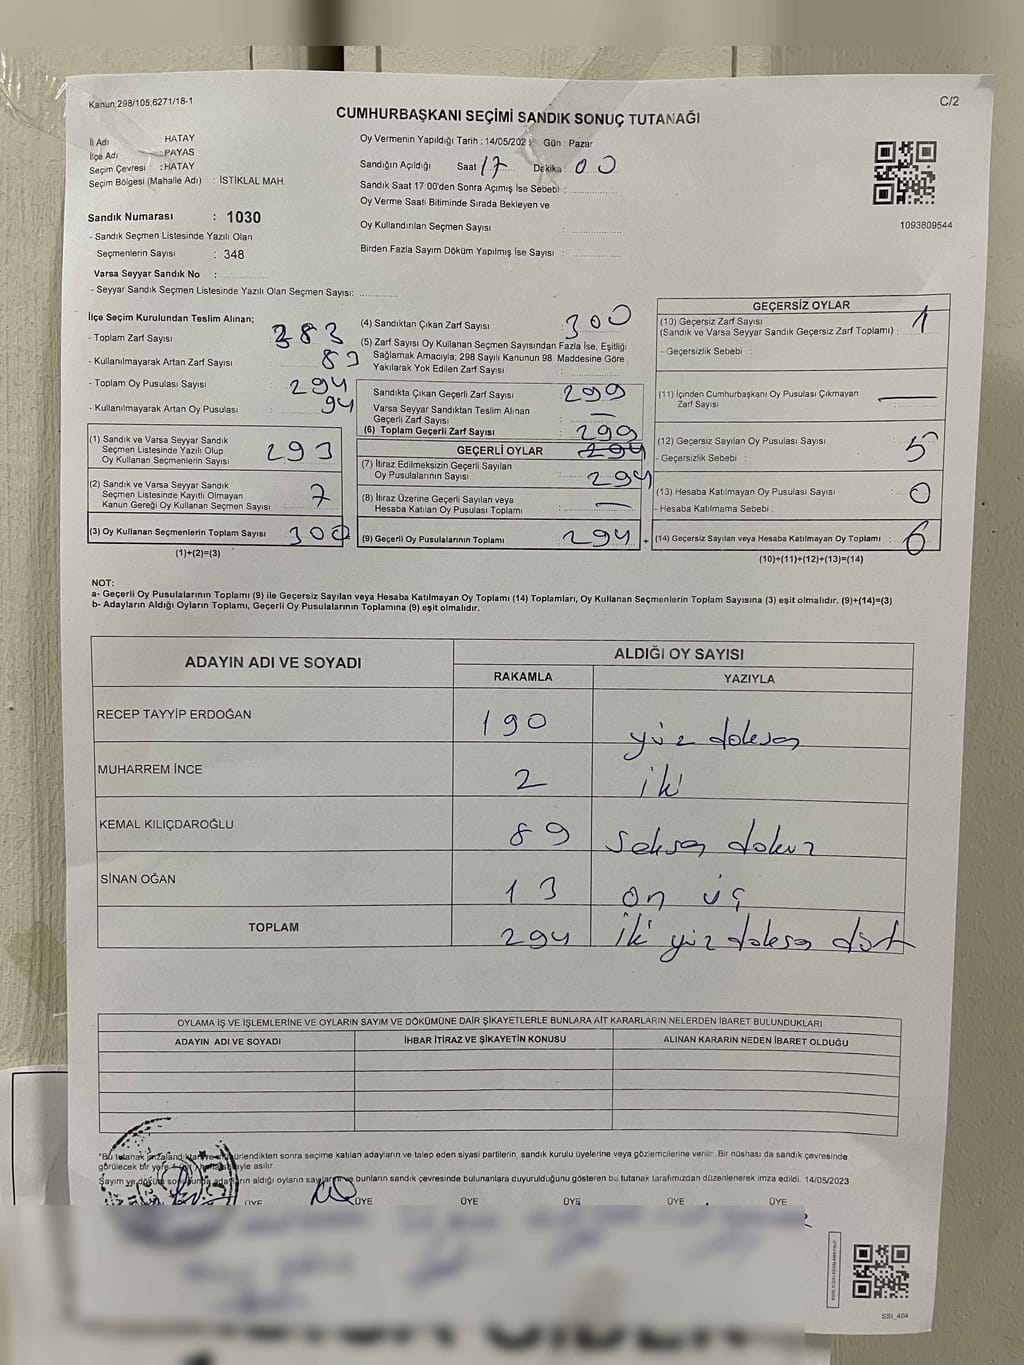 Kanun:298/105;6271/18-1
C/2
CUMHURBAŞKANI SEÇİMİ SANDIK SONUÇ TUTANAĞI
İl Adı : HATAY
İlçe Adı : PAYAS
Seçim Çevresi : HATAY
Seçim Bölgesi (Mahalle Adı) : İSTİKLAL MAH.
Oy Vermenin Yapıldığı Tarih : 14/05/2023 Gün : Pazar
Sandığın Açıldığı Saat 17 Dakika : 00
Sandık Saat 17:00'den Sonra Açımış İse Sebebi :
Oy Verme Saati Bitiminde Sırada Bekleyen ve
Oy Kullandırılan Seçmen Sayısı :
Birden Fazla Sayım Döküm Yapılmış İse Sayısı :
1093809544
Sandık Numarası : 1030
- Sandık Seçmen Listesinde Yazılı Olan
Seçmenlerin Sayısı : 348
Varsa Seyyar Sandık No :
- Seyyar Sandık Seçmen Listesinde Yazılı Olan Seçmen Sayısı:
İlçe Seçim Kurulundan Teslim Alınan;
- Toplam Zarf Sayısı 383
- Kullanılmayarak Artan Zarf Sayısı 83
- Toplam Oy Pusulası Sayısı 294
- Kullanılmayarak Artan Oy Pusulası 94
(1) Sandık ve Varsa Seyyar Sandık
Seçmen Listesinde Yazılı Olup
Oy Kullanan Seçmenlerin Sayısı 293
(2) Sandık ve Varsa Seyyar Sandık
Seçmen Listesinde Kayıtlı Olmayan
Kanun Gereği Oy Kullanan Seçmen Sayısı 7
(3) Oy Kullanan Seçmenlerin Toplam Sayısı 300
(1)+(2)=(3)
(4) Sandıktan Çıkan Zarf Sayısı : 300
(5) Zarf Sayısı Oy Kullanan Seçmen Sayısından Fazla İse, Eşitliği
Sağlamak Amacıyla; 298 Sayılı Kanunun 98. Maddesine Göre
Yakılarak Yok Edilen Zarf Sayısı :
Sandıkta Çıkan Geçerli Zarf Sayısı 299
Varsa Seyyar Sandıktan Teslim Alınan
Geçerli Zarf Sayısı : —
(6) Toplam Geçerli Zarf Sayısı 299
GEÇERLİ OYLAR 294
(7) İtiraz Edilmeksizin Geçerli Sayılan
Oy Pusulalarının Sayısı 294
(8) İtiraz Üzerine Geçerli Sayılan veya
Hesaba Katılan Oy Pusulası Toplamı : —
(9) Geçerli Oy Pusulalarının Toplamı 294
+
GEÇERSİZ OYLAR
(10) Geçersiz Zarf Sayısı
(Sandık ve Varsa Seyyar Sandık Geçersiz Zarf Toplamı) : 1
- Geçersizlik Sebebi :
(11) İçinden Cumhurbaşkanı Oy Pusulası Çıkmayan
Zarf Sayısı : —
(12) Geçersiz Sayılan Oy Pusulası Sayısı : 5
- Geçersizlik Sebebi :
(13) Hesaba Katılmayan Oy Pusulası Sayısı : 0
- Hesaba Katılmama Sebebi :
(14) Geçersiz Sayılan veya Hesaba Katılmayan Oy Toplamı : 6
(10)+(11)+(12)+(13)=(14)
NOT:
a- Geçerli Oy Pusulalarının Toplamı (9) ile Geçersiz Sayılan veya Hesaba Katılmayan Oy Toplamı (14) Toplamları, Oy Kullanan Seçmenlerin Toplam Sayısına (3) eşit olmalıdır. (9)+(14)=(3)
b- Adayların Aldığı Oyların Toplamı, Geçerli Oy Pusulalarının Toplamına (9) eşit olmalıdır.
ADAYIN ADI VE SOYADI
ALDIĞI OY SAYISI
RAKAMLA YAZIYLA
RECEP TAYYİP ERDOĞAN 190 yüz doksan
MUHARREM İNCE 2 iki
KEMAL KILIÇDAROĞLU 89 seksen dokuz
SİNAN OĞAN 13 on üç
TOPLAM 294 iki yüz doksan dört
OYLAMA İŞ VE İŞLEMLERİNE VE OYLARIN SAYIM VE DÖKÜMÜNE DAİR ŞİKAYETLERLE BUNLARA AİT KARARLARIN NELERDEN İBARET BULUNDUKLARI
ADAYIN ADI VE SOYADI İHBAR İTİRAZ VE ŞİKAYETİN KONUSU ALINAN KARARIN NEDEN İBARET OLDUĞU
*Bu tutanak imzalandıktan ve mühürlendikten sonra seçime katılan adayların ve talep eden siyasi partilerin, sandık kurulu üyelerine veya gözlemcilerine verilir. Bir nüshası da sandık çevresinde
görülecek bir yere asılır.
Sayım ve döküm sonunda adayların aldığı oyların sayılarını ve bunların sandık çevresinde bulunanlara duyurulduğunu gösteren bu tutanak tarafımızdan düzenlenerek imza edildi. 14/05/2023
ÜYE ÜYE ÜYE ÜYE ÜYE ÜYE
SSI_404